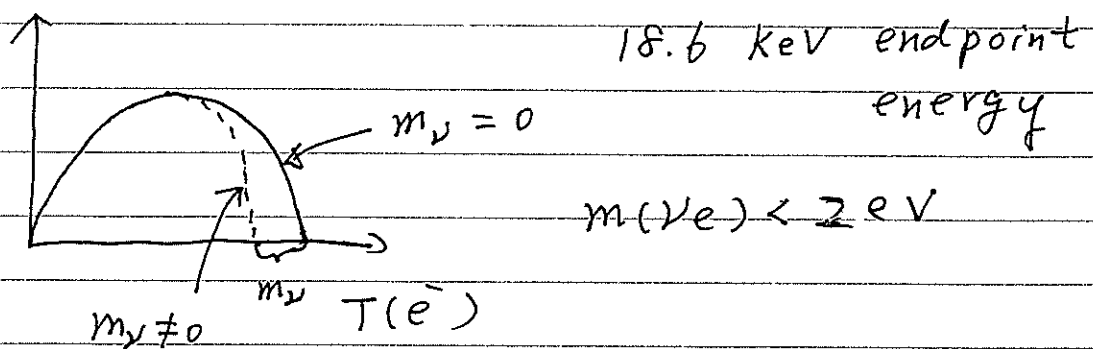 18.6 KeV endpoint
energy
m_ν = 0
m(νe) < 2 eV
m_ν
m_ν ≠ 0
T(e⁻)